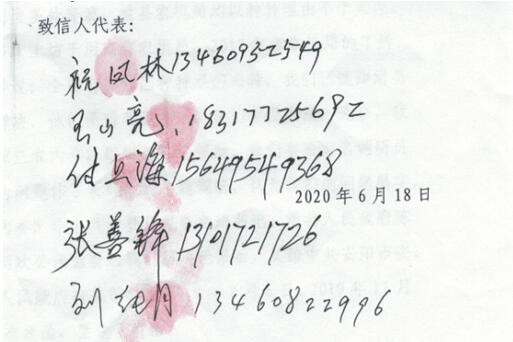 致信人代表:
祝凤林13460932549
王山亮、18317725692
付兵海15649549368
2020年6月18日
张善锋13101721726
刘纯月13460822996